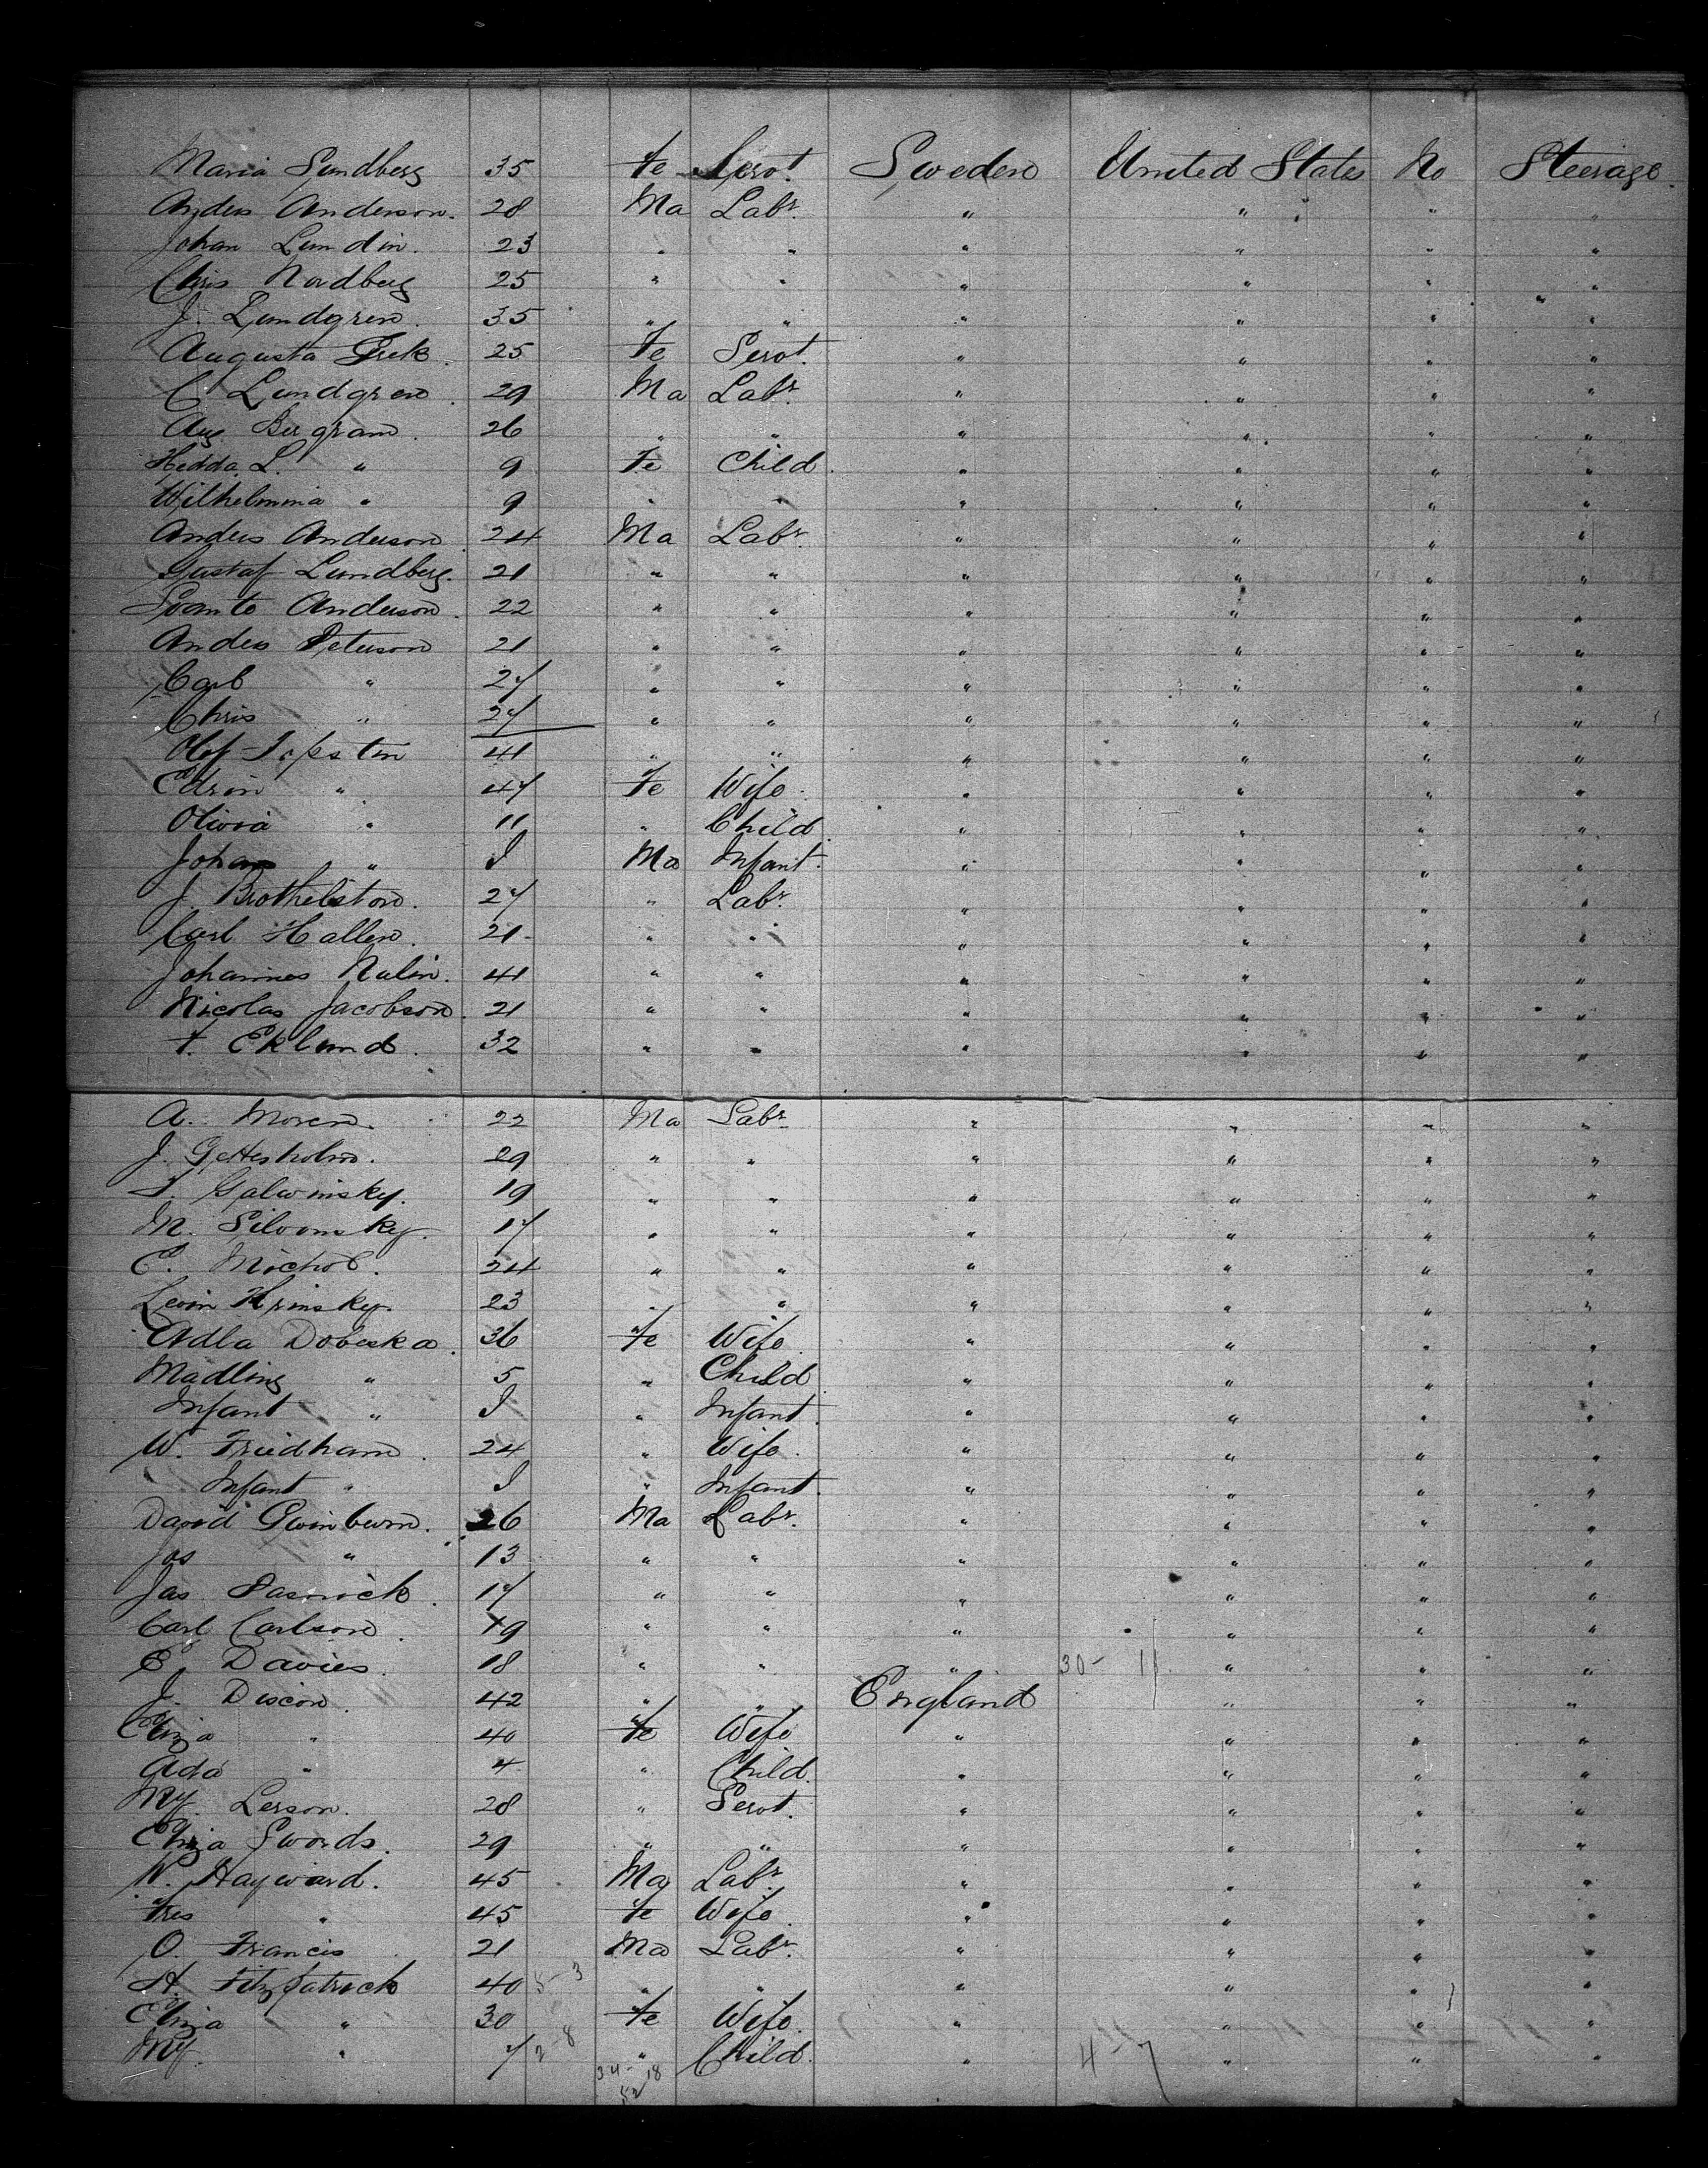 Maria Sundberg 35 Fe Servt. Sweden United States No Steerage
Anders Anderson. 28 Ma Labr. " " " "
Johan Lundin. 23 " " " " " "
Chris Nordberg 25 " " " " " "
J. Lundgren. 35 " " " " " "
Augusta 25 Fe Servt. " " " "
C Lundgren. 29 Ma Labr. " " " "
Aug Bergram. 26 " " " " " "
Hedda L. " 9 Fe Child. " " " "
Wilhelmina " 9 " " " " " "
Anders Anderson. 24 Ma Labr. " " " "
Gustaf Lundberg. 21 " " " " " "
Svante Anderson. 22 " " " " " "
Anders Peterson 21 " " " " " "
Carl " 27 " " " " " "
Chris " 27 " " " " " "
Olof 41 " " " " " "
" 47 Fe Wife. " " " "
Olivia " 11 " Child. " " " "
Johan " I Ma Infant. " " " "
J. Brothelston. 27 " Labr. " " " "
Carl Hallen. 21 " " " " " "
Johannes Nalin. 41 " " " " " "
Nicolas Jacobson. 21 " " " " " "
F. Eklund. 32 " " " " " "
A. Moren. 22 Ma Labr. " " " "
J. Gettesholm. 29 " " " " " "
S. Galwinsky. 19 " " " " " "
M. Silvonsky. 17 " " " " " "
E. Michol. 24 " " " " " "
Levin Krinsky. 23 " " " " " "
Adla Dobeska. 36 Fe Wife. " " " "
Madling " 5 " Child. " " " "
Infant " I " Infant. " " " "
W. Friedham. 24 " Wife. " " " "
Infant " I " Infant. " " " "
David Gwinburn. 26 Ma Labr. " " " "
Jos " 13 " " " " " "
Jas Pasnick. 17 " " " " " "
Carl Carlson. 19 " " " " " "
E. Davies. 18 " " " 30- 11 " " "
J. Discon. 42 " " England " " "
Eliza " 40 Fe Wife " " " "
Ada " 4 " Child. " " " "
My. Lerson. 28 " Servt. " " " "
Eliza Swords. 29 " " " " " "
W. Hayward. 45 Ma Labr. " " " "
Frs " 45 Fe Wife. " " " "
O. Francis 21 Ma Labr. " " " "
H. Fitzpatrick 40 5-3 " " " " " "
Eliza " 30 Fe Wife. " " " "
My. " 7 2-8 " Child. " 4-7 " " "
34-18
52